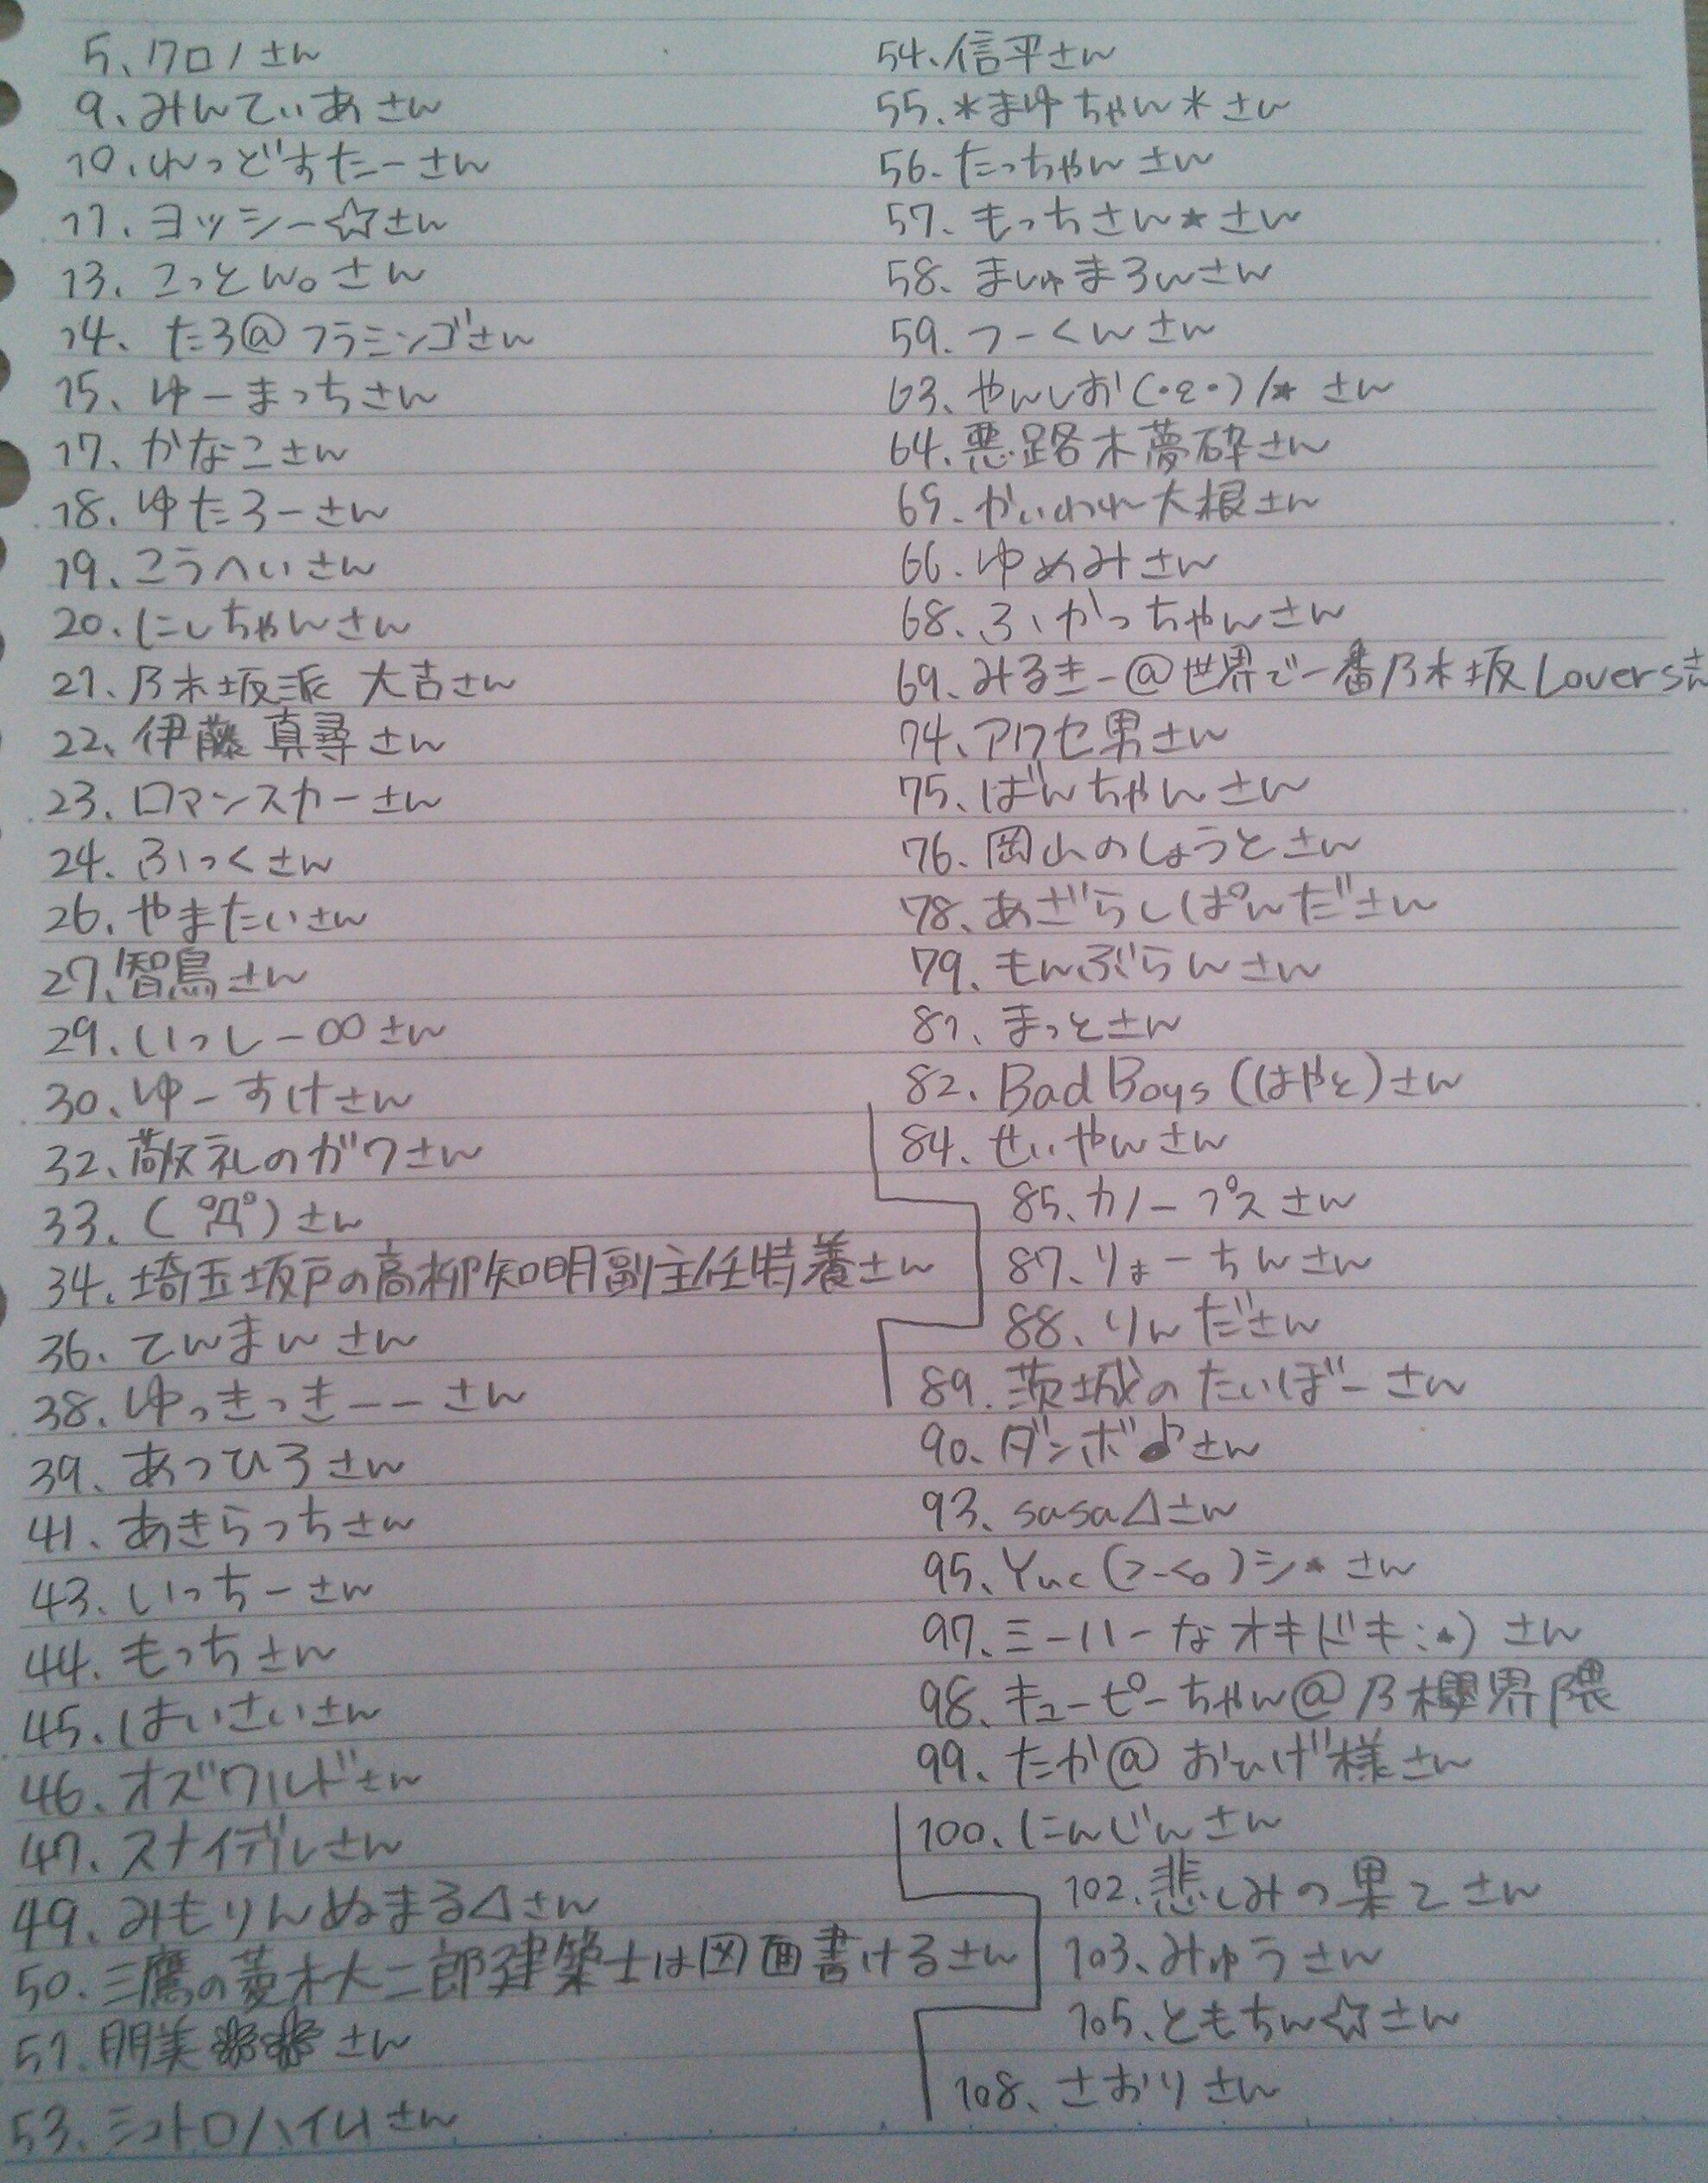 5、クロノさん
9、みんてぃあさん
10、れっどすたーさん
11、ヨッシー☆さん
13、こっとん。さん
14、たろ@フラミンゴさん
15、ゆーまっちさん
17、かなこさん
18、ゆたろーさん
19、こうへいさん
20、にしちゃんさん
21、乃木坂派 大吉さん
22、伊藤 真尋さん
23、ロマンスカーさん
24、ふっくさん
26、やまたいさん
27、智鳥さん
29、いっしー∞さん
30、ゆーすけさん
32、敬礼のガワさん
33、( ゚Д゚)さん
34、埼玉坂戸の高柳知明副主任特養さん
36、てんまんさん
38、ゆっきっきーーさん
39、あつひろさん
41、あきらっちさん
43、いっちーさん
44、もっちさん
45、はいさいさん
46、オズワルドさん
47、スナイデルさん
49、みもりんぬまる⊿さん
50、三鷹の菱木大二郎建築士は図面書けるさん
51、朋美❀❀さん
53、シュトロハイムさん
54、信平さん
55、*まゆちゃん*さん
56、たっちゃんさん
57、もっちさん★さん
58、ましゅまろんさん
59、つーくんさん
63、やんしお(・ε・)/★ さん
64、悪路木夢砕さん
65、かいわれ大根さん
66、ゆめみさん
68、ふかっちゃんさん
69、みるきー@世界で一番乃木坂Loversさん
74、アワセ男さん
75、ばんちゃんさん
76、岡山のしょうとさん
78、あざらしぱんださん
79、もんぶらんさん
81、まっとさん
82、Bad Boys (はやと)さん
84、せいやんさん
85、カノープスさん
87、りょーちんさん
88、りんださん
89、茨城のたいぼーさん
90、ダンボ♪さん
93、sasa⊿さん
95、Yuc(>-<。)シ★さん
97、ミーハーなオキドキ:★) さん
98、キューピーちゃん@乃櫻界隈
99、たか@おひげ様さん
100、にんじんさん
102、悲しみの果てさん
103、みゅうさん
105、ともちん☆さん
108、さおりさん